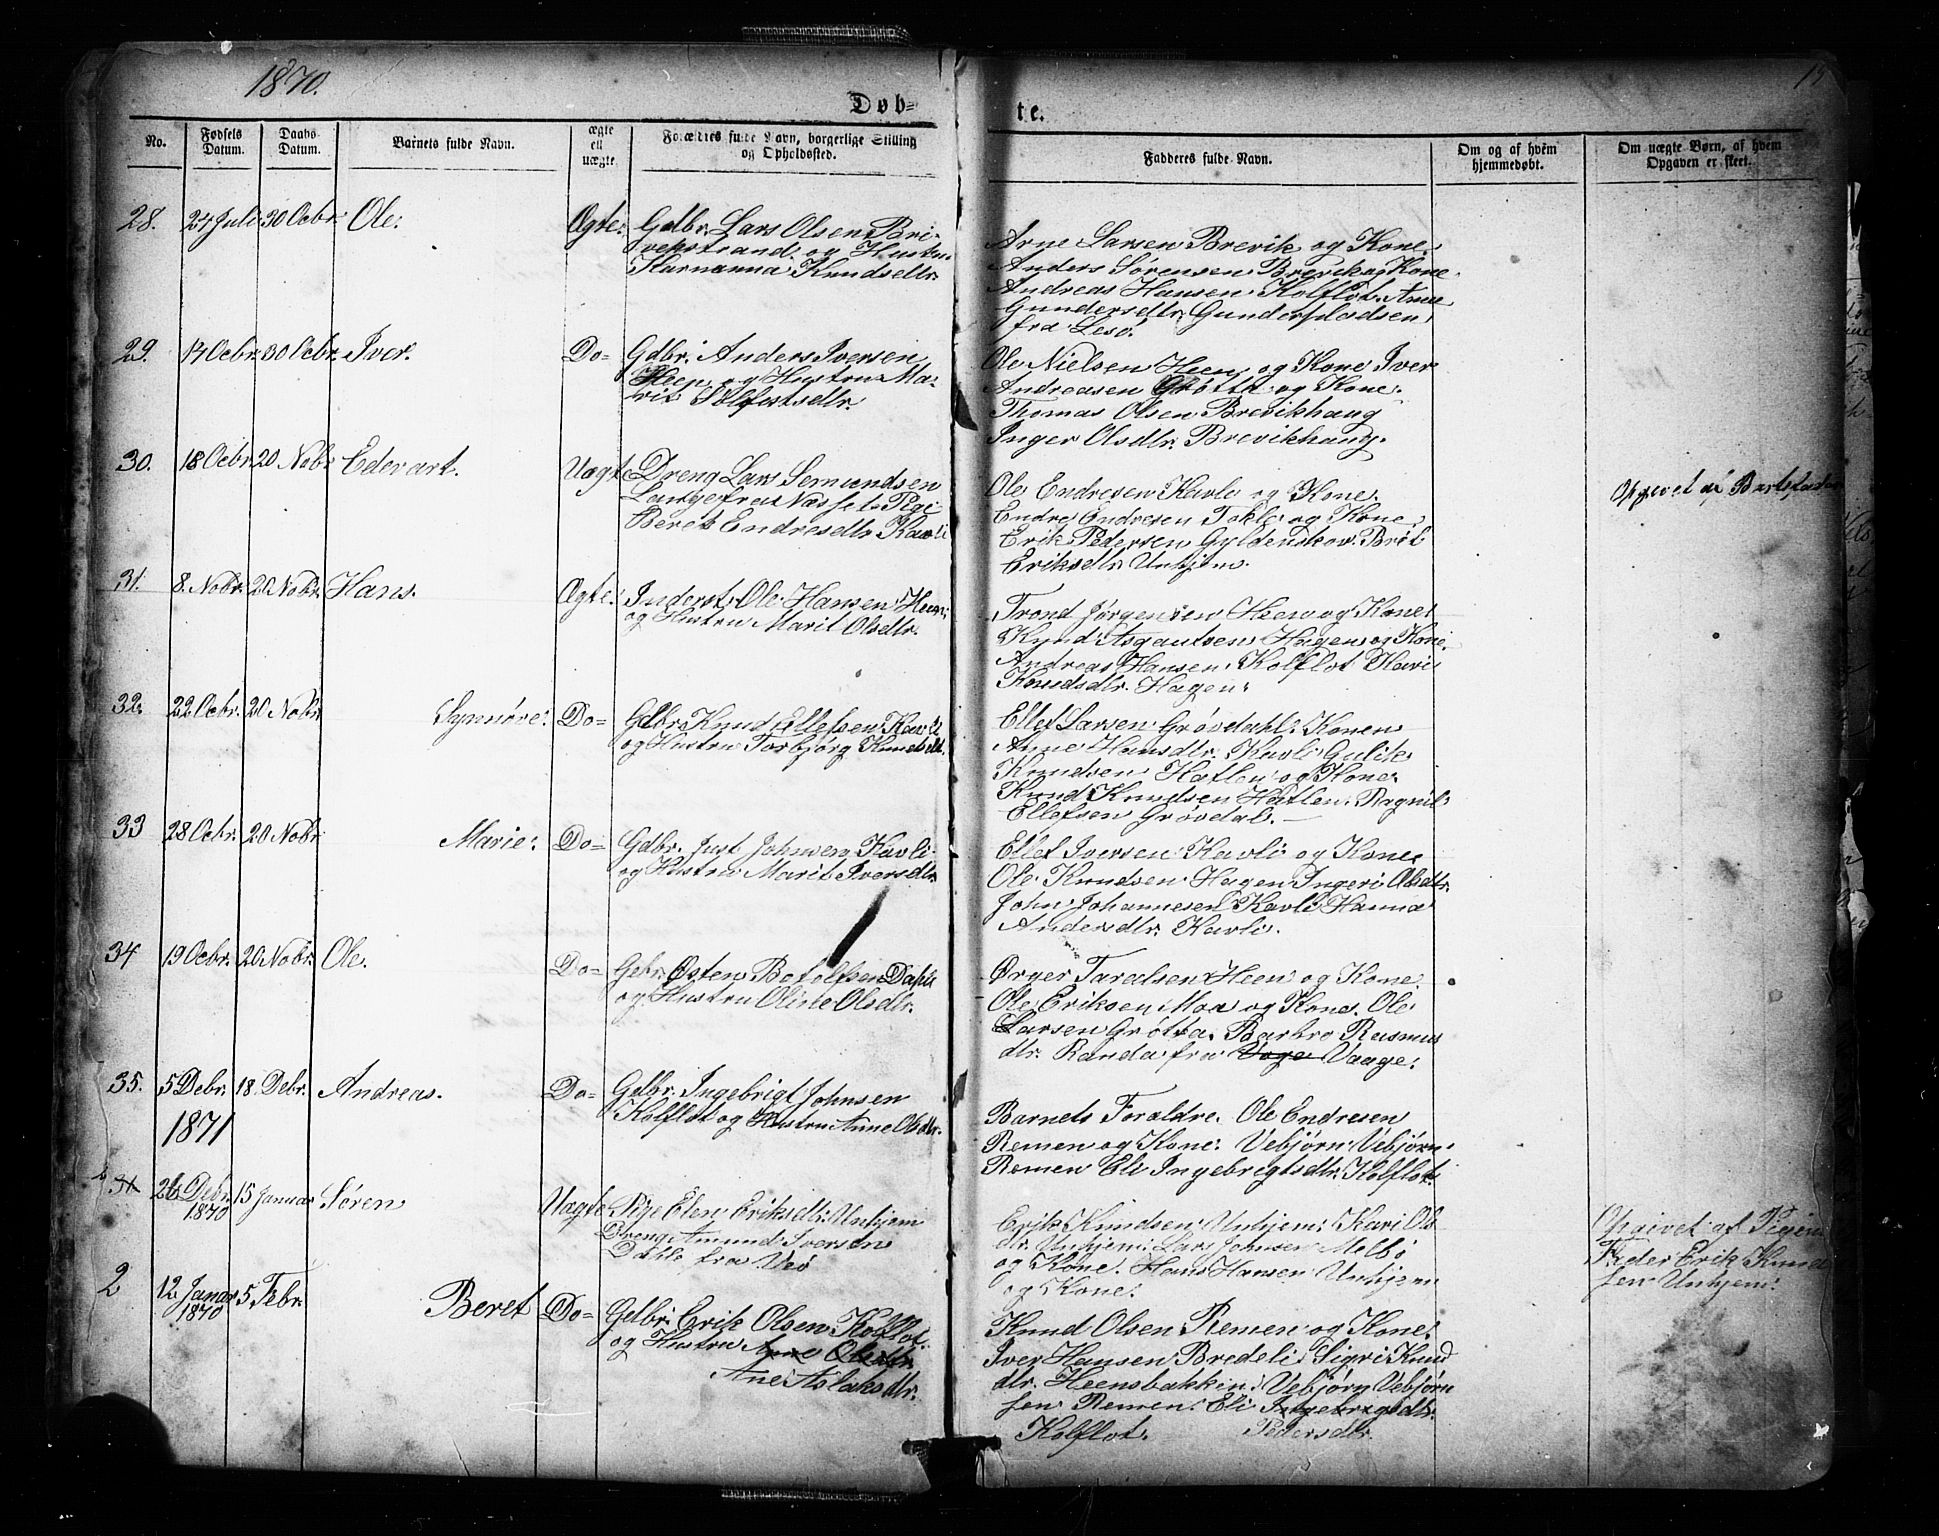 1870.
15
Døb-
te.
No.
Fødsels Datum.
Daabs Datum.
Barnets fulde Navn.
ægte ell uægte
Forældres fulde Navn, borgerlige Stilling og Opholdssted.
Fadderes fulde Navn.
Om og af hvem hjemmedøbt.
Om uægte Børn, af hvem Opgaven er skeet.
28. 24 Juli 30 Ocbr. Ole. Ægte. Gdbr. Lars Olsen Bri-
vekstrand og Hustru
Karnanna Knudsdtr.
Arne Larsen Brevik og Kone
Anders Sørensen Brevik og Kone
Andreas Hansen Kolflot. Anne
Gundersdtr. Gunderpladsen
fra Lesø
29. 14 Ocbr. 30 Ocbr. Iver. Do= Gdbr. Anders Iversen
Heen og Hustru Ma-
rit Solfestsdtr.
Ole Nielsen Heen og Kone Iver
Andreasen Grøtta og Kone.
Thomas Olsen Brevikhaug
Inger Olsdtr. Brevikhaug.
30. 18 Ocbr. 20 Nobr. Edevart. Uægte Dreng Lars Semundsen
Lange fra Næsset Pige
Beret Endresdtr Kavli
Ole Endresen Kavli og Kone.
Endre Endresen Tokle og Kone
Erik Pedersen Gyldenskov. Brit
Eriksdtr Unhjem.
Opgivet af Barnefader
31. 8. Nobr. 20 Nobr. Hans. Ægte. Inderst Ole Hansen Heen
og Hustru Marit Olsdtr.
Trond Jørgensen Heen og Kone
Knud Asgautsen Hagen og Kone.
Andreas Hansen Kolflot Kari
Knudsdtr. Hagen.
32. 22 Ocbr. 20 Nobr. Synnøve. Do= Gdbr Knud Ellefsen Kavli
og Hustru Torbjørg Knudsdt.
Ellef Larsen Grøvdahl. Konen
Anne Hansdtr. Kavli Gulik
Knudsen Hatlen og Kone.
Knud Knudsen Hatlen. Ragnil
Ellefsen Grøvdal.
33 28 Ocbr. 20 Nobr. Marie. Do= Gdbr. Just Johnsen Kavli
og Hustru Marit Iversdtr.
Ellef Iversen Kavli og Kone
Ole Knudsen Hagen Ingeri Olsdtr.
John Johannesen Kavli Hanna
Andersdtr. Kavli.
34 19 Ocbr. 20 Nobr. Ole. Do= Gebr. Østen Botolfsen Dahle
og Hustru Oline Olsdtr.
Ørger Taralsen Heen og Kone.
Ole Eriksen Moa og Kone. Ole
Larsen Grøtta. Barbro Rasmus
dtr. Randa fra Vage Vaage.
35. 5 Debr. 18. Debr. Andreas. Do= Gelbr. Ingebrigt Johnsen
Kolflot og Hustru Anne Olsdtr.
Barnets Foraldre. Ole Endresen
Remen og Kone. Vebjørn Vebjørn-
Remen Eli Ingebrigtsdtr. Kolflot.
1871
26 Debr. 1870 15 Januar Søren Uægte Pige Elen Eriksdtr. Unhjem
Dreng Amund Iversen
Dahle fra Veø
Erik Knudsen Unhjem. Kari Ols
dtr. Unhjem. Lars Johnsen Melbø
og Kone. Hans Hansen Unhjem
og Kone.
Opgivet af Pigen
Fader Erik Knud
sen Unhjem.
2 12 Januar 1870 5 Febr. Beret Do= Gelbr. Erik Olsen Kolflot.
og Hustru Anne Olsdtr.
Ane Aslaksdtr.
Knud Olsen Remen og Kone.
Iver Hansen Bredeli. Sigri Knud
dtr. Heensbakken. Vebjørn Vebjørn
sen Remen. Eli Ingebrigtsdtr.
Kolflot. Pedersdtr.